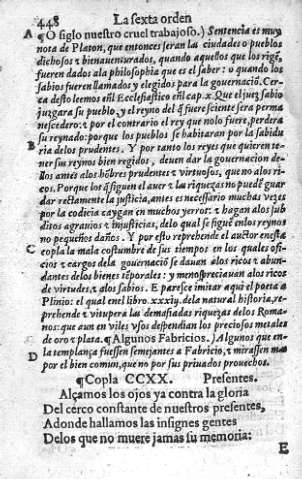 448 La sexta orden
A ¶O siglo nuestro cruel trabajoso.) Sentencia es muy
nota de Platon, que entonces seran las ciudades o pueblos
dichosos & bienauenturados, quando aquellos que los rigẽ,
fueren dados ala philosophia que es el saber: o quando los
sabios fueren llamados y elegidos para la gouernaciõ. Cer
ca desto leemos enl Ecclesiastico enl cap.x. Que el juez sabio
juzgara su pueblo, y el reyno del q̃ fuere sciente sera perma
nescedero: & por el contrario el rey que nolo fuere, perdera
su reynado: porque los pueblos se habitaran por la sabidu
B ria delos prudentes. Y por tanto los reyes que quieren te-
ner sus reynos bien regidos, deuen dar la gouernacion de-
llos antes alos hõbres prudentes & virtuosos, que no alos ri-
cos. Porque los q̃ siguen el auer & las riquezas no puedẽ guar
dar rectamente la justicia, antes es necessario muchas vezes
por la codicia caygan en muchos yerros: & hagan alos sub
ditos agrauios & injusticias, delo qual se siguẽ enlos reynos
no pequeños daños. Y por esto reprehende el auctor enesta
C copla la mala costumbre de sus tiempos en los quales offi-
cios & cargos dela gouernaciõ se dauan alos ricos & abun-
dantes delos bienes tẽporales: y menospreciauan alos ricos
de virtudes, & alos sabios. E paresce imitar aqui el poeta a
Plinio: el qual enel libro.xxxiij. dela natural historia, re-
prehende & vitupera las demasiadas riquezas delos Roma-
nos: que aun en viles vsos despendian los preciosos metales
de oro & plata. ¶Algunos Fabricios.) Algunos que en
D la templança fuessen semejantes a Fabricio, & mirassen mas
por el bien comun, que no por sus priuados prouechos.
¶Copla CCXX. Presentes.
Alçamos los ojos ya contra la gloria
Del cerco constante de nuestros presentes,
Adonde hallamos las insignes gentes
Delos que no muere jamas su memoria:
E